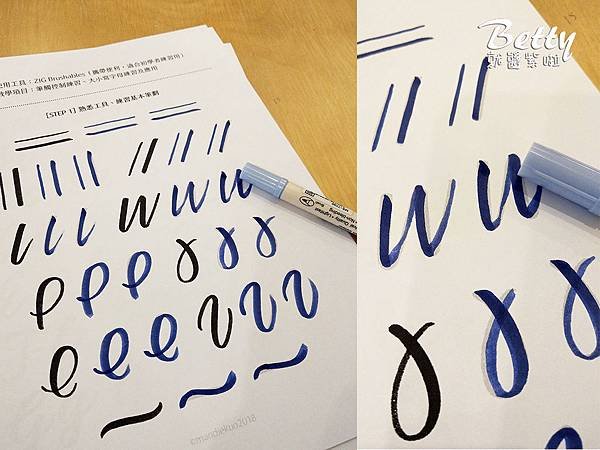 使用工具：ZIG Brushables（攜帶便利，適合初學者練習用）
教學項目：筆觸控制練習、大小寫字母練習及應用
[STEP 1] 熟悉工具、練習基本筆劃
©mandiekuo2018
Betty